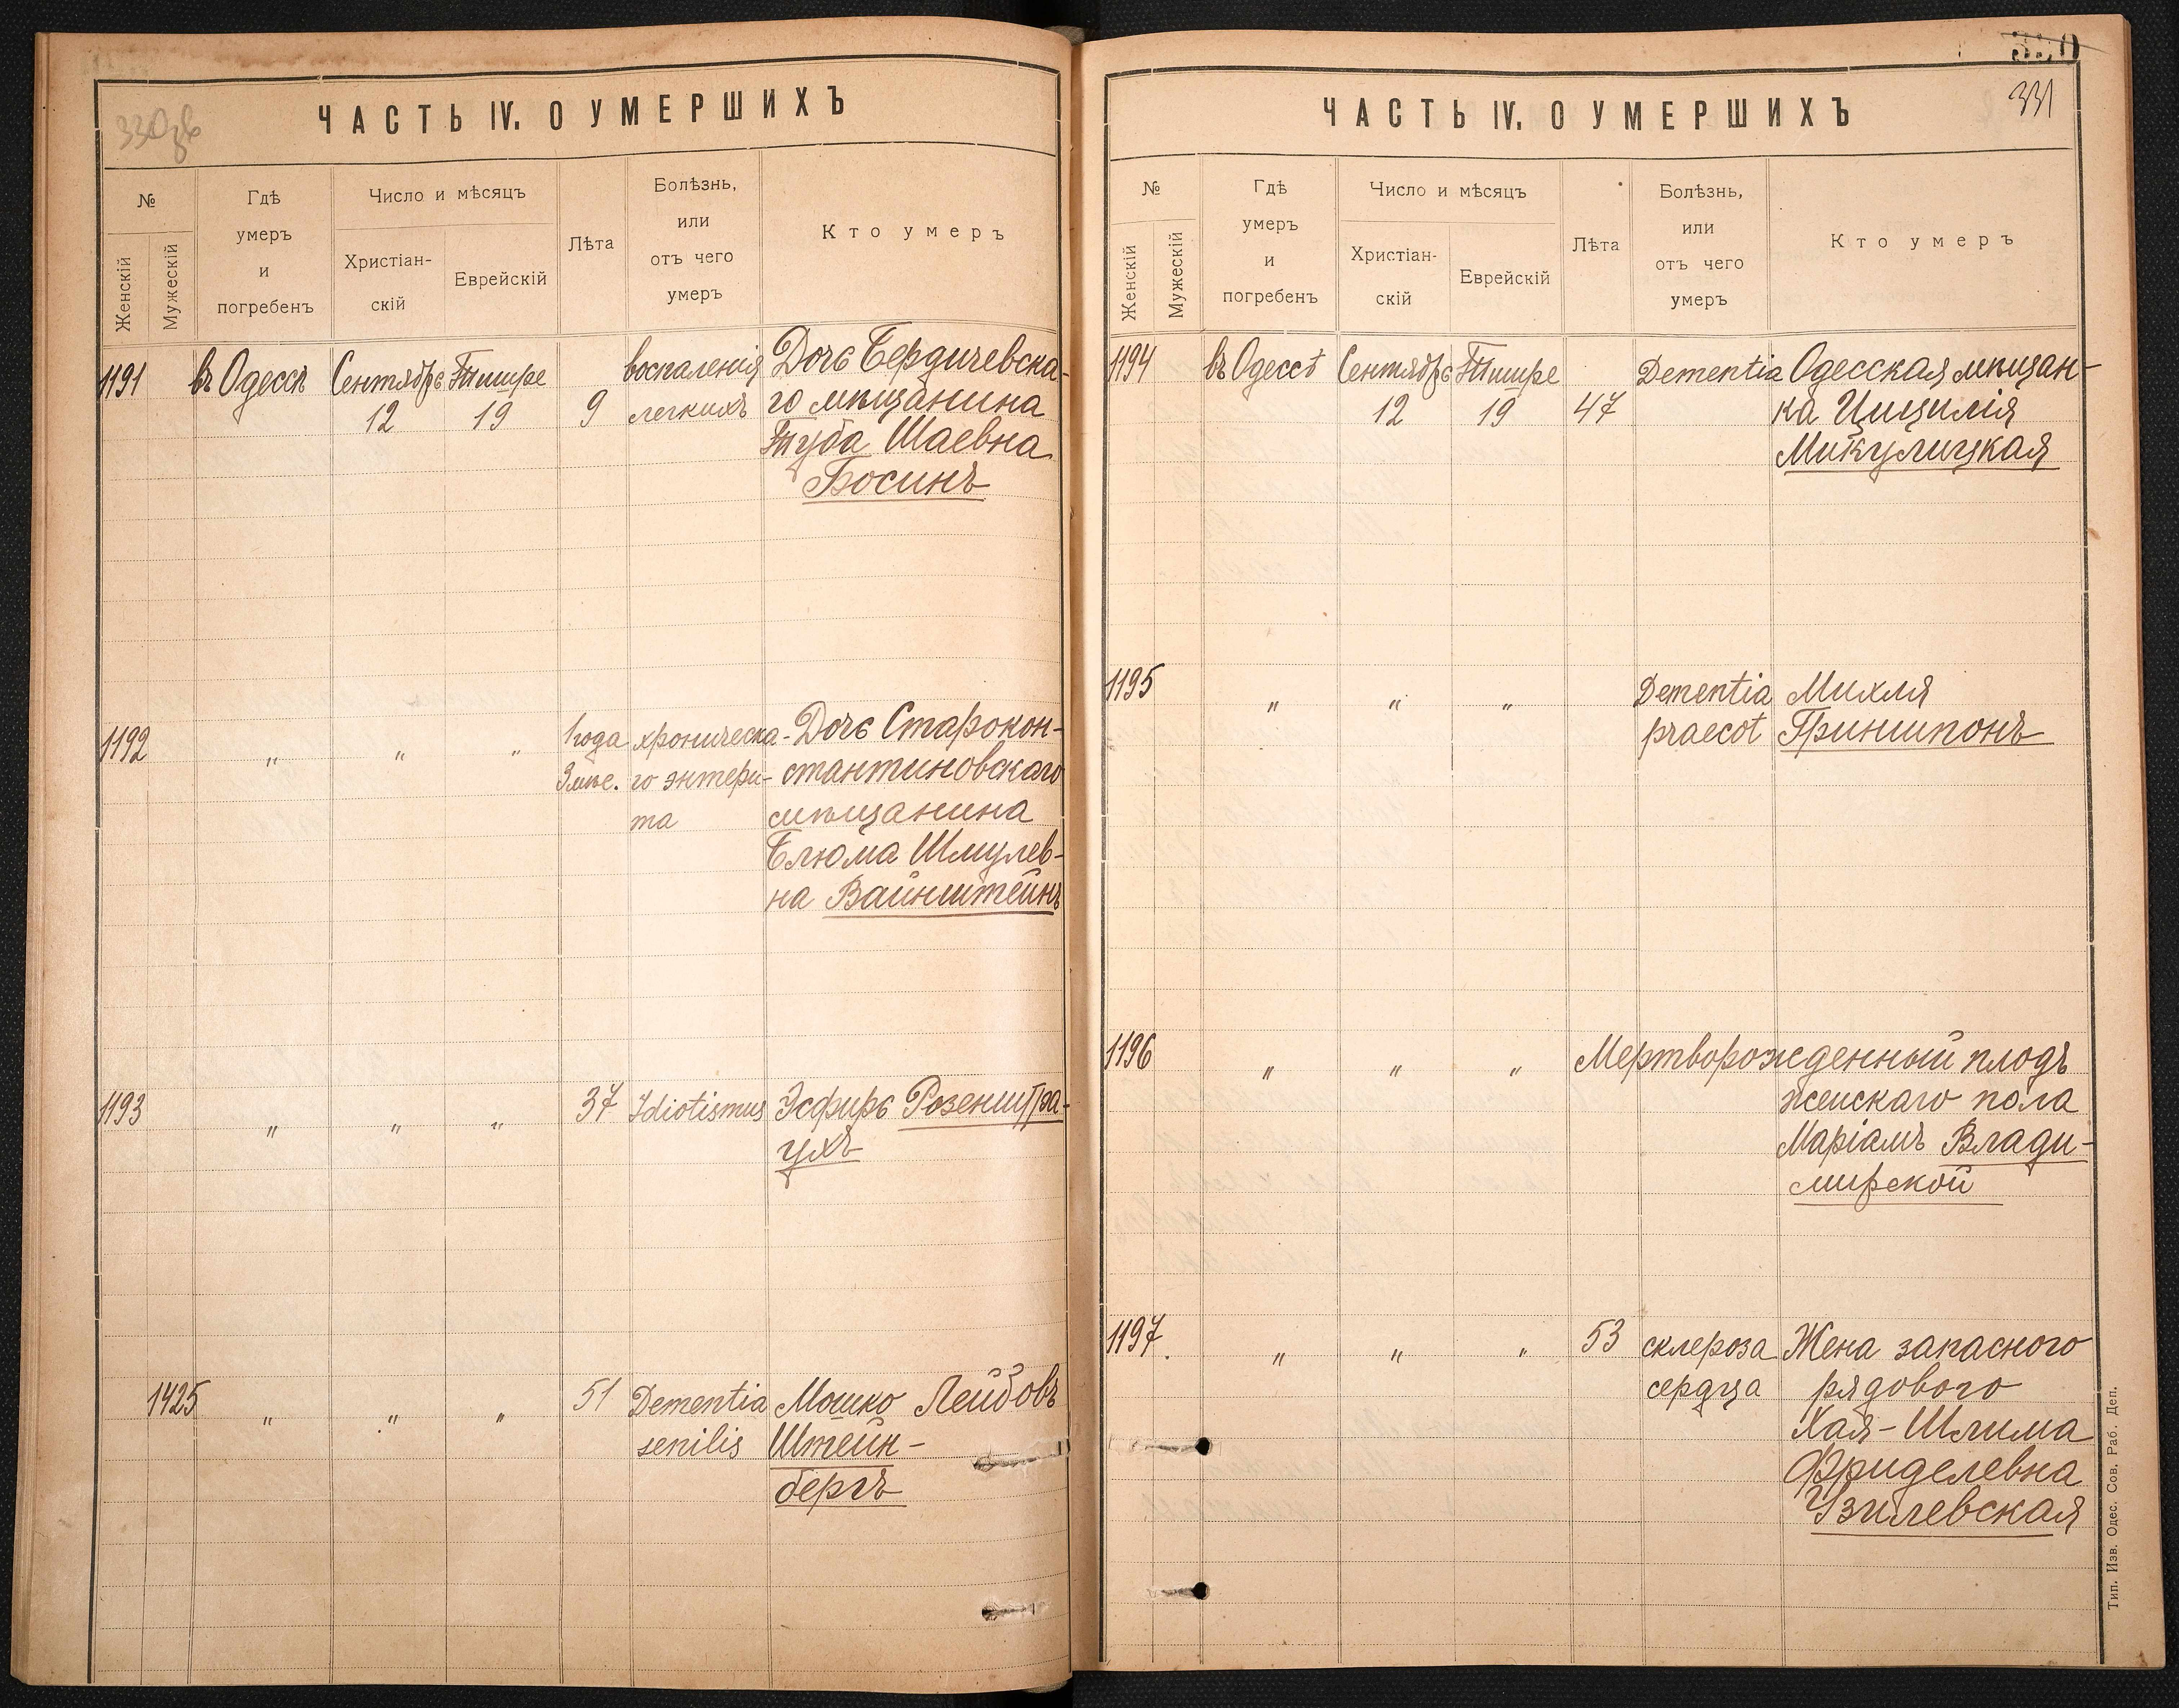 330 зв
ЧАСТЬ IV. О УМЕРШИХЪ
№
Женскій
Мужескій
Гдѣ
умеръ
и
погребенъ
Число и мѣсяцъ
Христіан-
скій
Еврейскій
Лѣта
Болѣзнь,
или
отъ чего
умеръ
Кто умеръ
1191 въ Одессѣ Сентябрь Тишре воспаленія Дочь Бердичевска-
12 19 9 легкихъ го мѣщанина
Туба Шаевна
Босинъ
1192 " " " 1 года хроническа- Дочь Старокон-
3 мѣс. го энтери- стантиновскаго
та мѣщанина
Блюма Шмулев-
на Вайнштейнъ
1193 " " " 37 Idiotismus Эсфирь Розенштра-
ухъ
1425 " " " 51 Dementia Мошко Лейбовъ
senilis Штейн-
бергъ
330
331
ЧАСТЬ IV. О УМЕРШИХЪ
№
Женскій
Мужескій
Гдѣ
умеръ
и
погребенъ
Число и мѣсяцъ
Христіан-
скій
Еврейскій
Лѣта
Болѣзнь,
или
отъ чего
умеръ
Кто умеръ
1194 въ Одессѣ Сентябрь Тишре Dementia Одесская мѣщан-
12 19 47 ка Цицилія
Микулицкая
1195 " " " Dementia Михля
praecot Гриншпонъ
1196 " " " Мертворожденный плодъ
женскаго пола
Маріамъ Влади-
мирской
1197 " " " 53 склероза Жена запасного
сердца рядового
Хая-Шлима
Фриделевна
Узилевская
Тип. Изв. Одес. Сов. Раб. Деп.